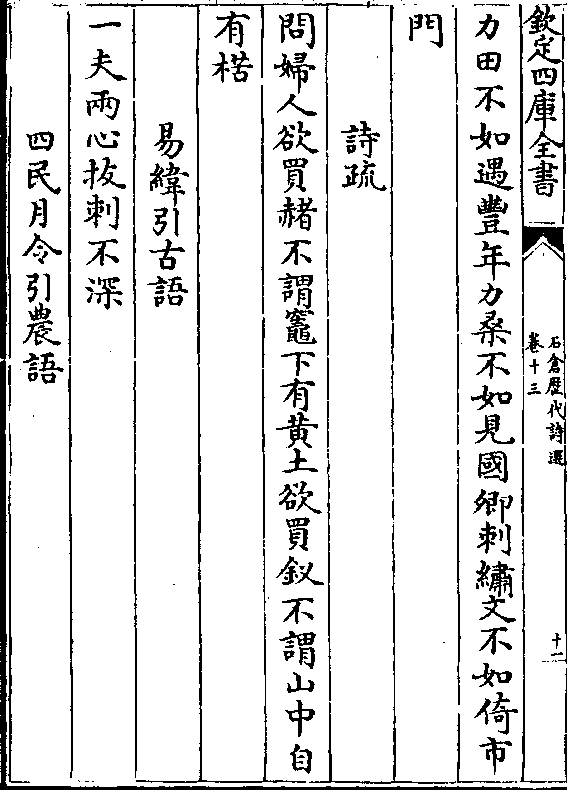 欽定四庫全書
石倉歴代詩選
卷十三
十一
力田不如遇豐年力桑不如見國卿刺繡文不如倚市
門
詩疏
問婦人欲買赭不謂竈下有黄土欲買釵不謂山中自
有楛
易緯引古語
一夫兩心拔刺不深
四民月令引農語